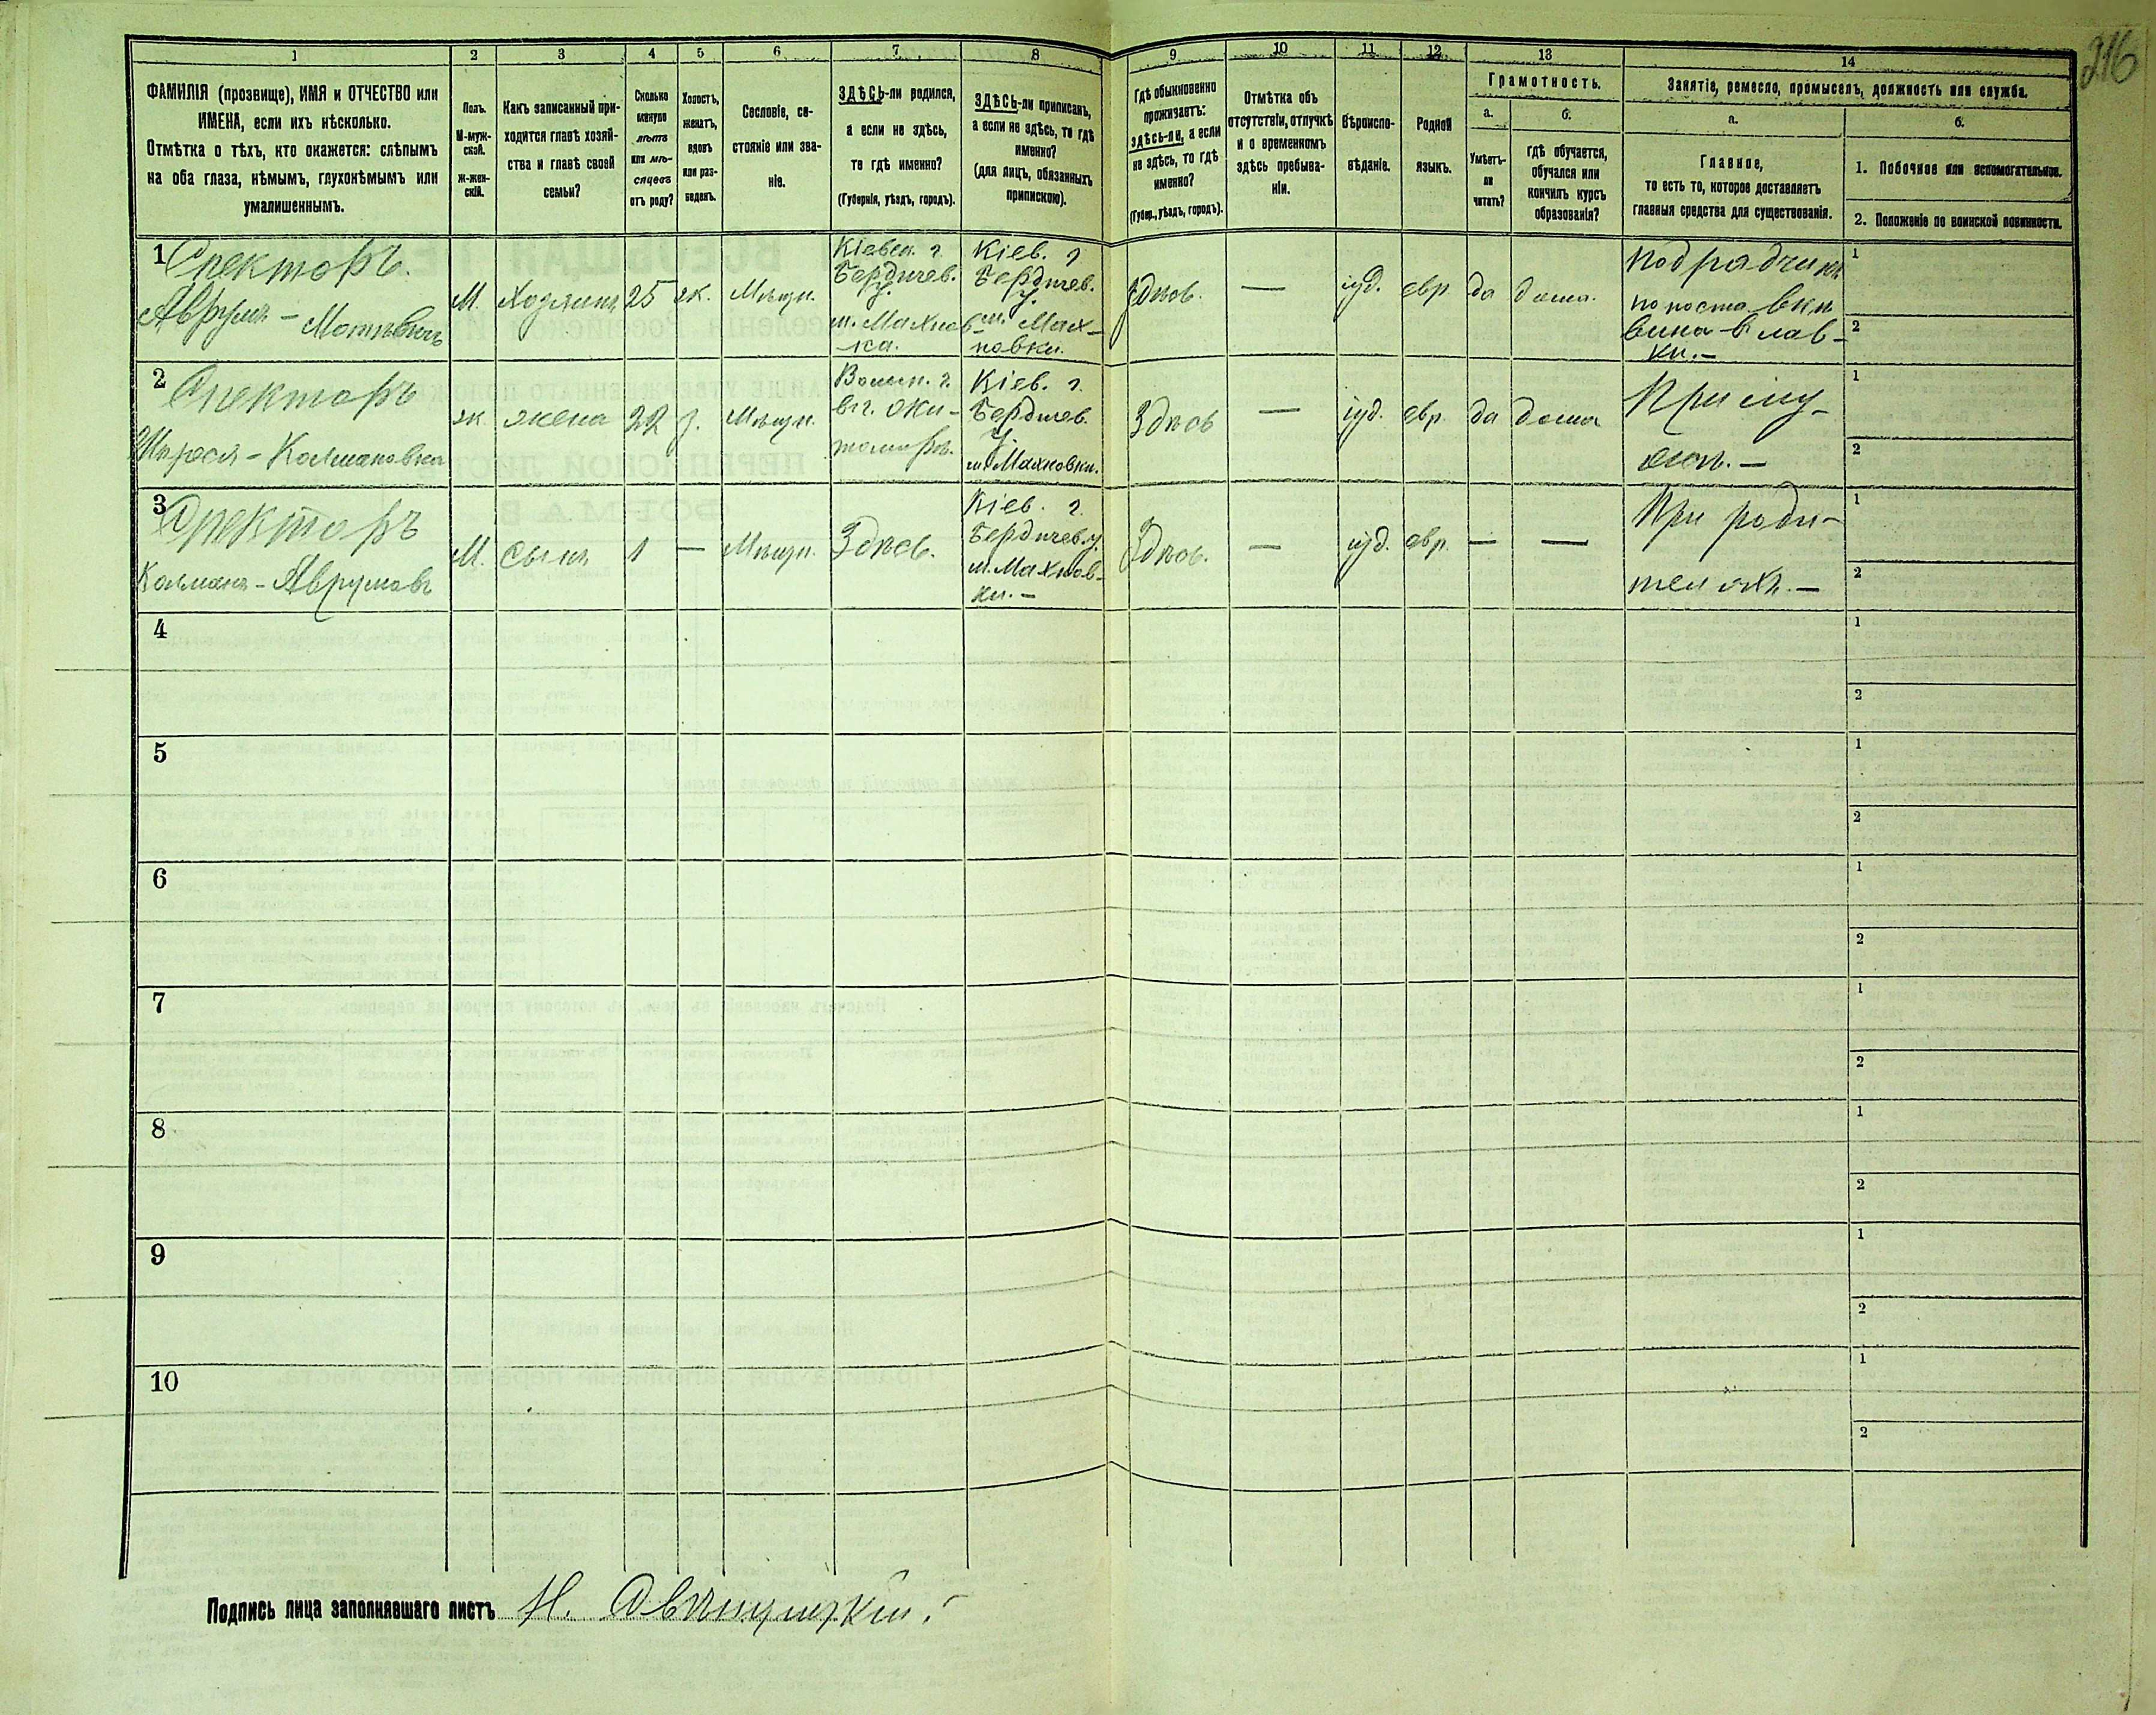 216
1 2 3 4 5 6 7 8 9 10 11 12 13 14
ФАМИЛІЯ (прозвище), ИМЯ и ОТЧЕСТВО или
ИМЕНА, если ихъ нѣсколько.
Отмѣтка о тѣхъ, кто окажется: слѣпымъ
на оба глаза, нѣмымъ, глухонѣмымъ или
умалишеннымъ.
Полъ.
М-муж-
ской.
Ж-жен-
скій.
Какъ записанный при-
ходится главѣ хозяй-
ства и главѣ своей
семьи?
Сколько
минуло
лѣтъ
или мѣ-
сяцевъ
отъ роду?
Холостъ,
женатъ,
вдовъ
или раз-
веденъ.
Сословіе, со-
стояніе или зва-
ніе.
ЗДѢСЬ-ли родился,
а если не здѣсь,
то гдѣ именно?
(Губернія, уѣздъ, городъ).
ЗДѢСЬ-ли приписанъ,
а если не здѣсь, то гдѣ
именно?
(для лицъ, обязанныхъ
припискою).
Гдѣ обыкновенно
проживаетъ:
здѣсь-ли, а если
не здѣсь, то гдѣ
именно?
(Губер., уѣздъ, городъ).
Отмѣтка объ
отсутствіи, отлучкѣ
и о временномъ
здѣсь пребыва-
ніи.
Вѣроиспо-
вѣданіе.
Родной
языкъ.
Грамотность.
а.
Умѣетъ-
ли
читать?
б.
гдѣ обучается,
обучался или
кончилъ курсъ
образованія?
Занятіе, ремесло, промыселъ, должность или служба.
а.
Главное,
то есть то, которое доставляетъ
главныя средства для существованія.
б.
1. Побочное или вспомогательное.
2. Положеніе по воинской повинности.
1
Спекторъ.
Аврумъ - Мотьевичъ
М.
Хозяинъ
25
ж.
Мѣщн.
Кіевск. г.
Бердичев.
у.
м. Махнов-
ка.
Кіев. г
Бердичев.
у.
м. Мах-
новки.
Здѣсь.
—
іуд.
евр
да
дома.
Подрядчикъ
по поставкѣ
вина в лав-
ки. -
1
2
2
Спекторъ
Колмановна
ж
жена
22
з.
Мѣщн.
Волын. г.
вг. Жи-
томиръ.
Кіев. г.
Бердичев.
у.
м. Махновки.
Здѣсь
—
іуд.
евр.
да
дома
При му-
жѣ. —
1
2
3
Спекторъ
Колманъ - Аврумовъ
М.
сынъ
1
—
Мѣщн.
Здѣсь.
Кіев. г.
Бердичев. у.
м. Махнов-
ки. -
Здѣсь.
—
іуд.
евр.
—
—
При роди-
теляхъ. —
1
2
4
1
2
5
1
2
6
1
2
7
1
2
8
1
2
9
1
2
10
1
2
Подпись лица заполнявшаго листъ Н.